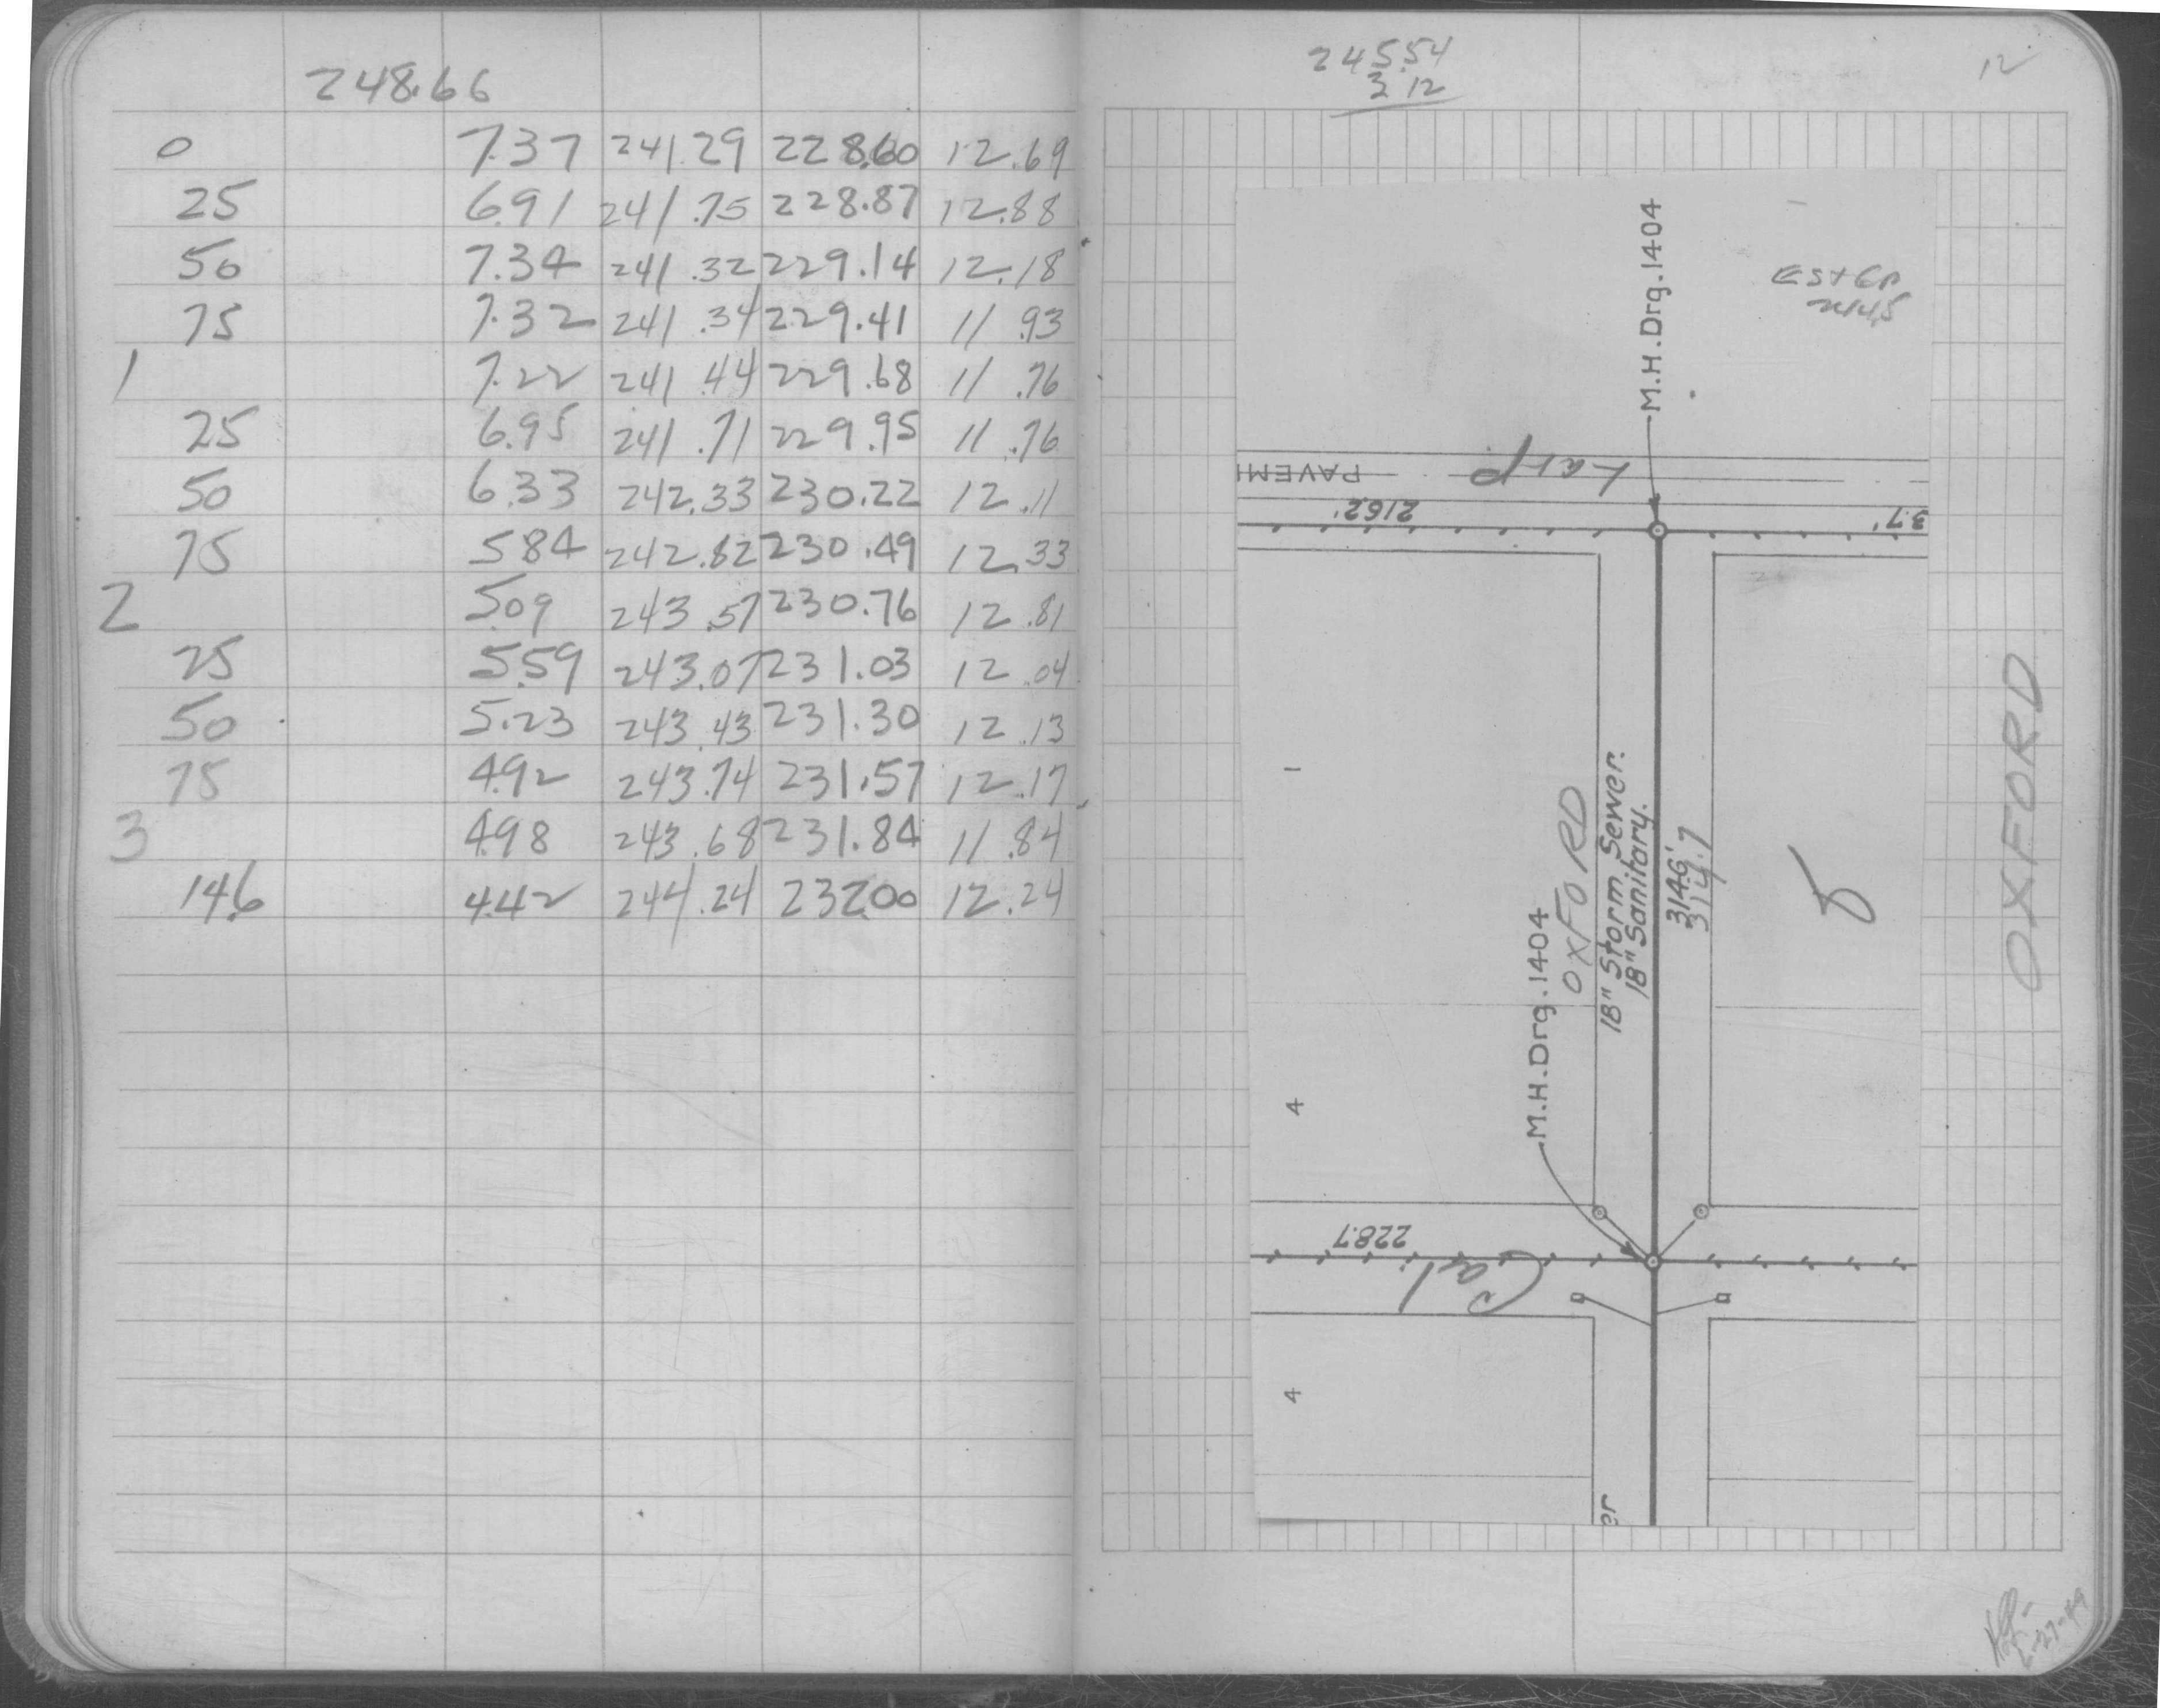 248.66
0 7.37 241.29 228.60 12.69
25 6.91 241.75 228.87 12.88
50 7.34 241.32 229.14 12.18
75 7.32 241.34 229.41 11.93
1 7.22 241.44 229.68 11.76
25 6.95 241.71 229.95 11.76
50 6.33 242.33 230.22 12.11
75 5.84 242.82 230.49 12.33
2 5.09 243.57 230.76 12.81
25 5.59 243.07 231.03 12.04
50 5.23 243.43 231.30 12.13
75 4.92 243.74 231.57 12.17
3 4.98 243.68 231.84 11.84
14.6 4.42 244.24 232.00 12.24
245.54
3.12
12
M.H.Drg.1404
PAVEM
216.2'
3.7'
OXFORD
OXFORD
18" Storm Sewer.
18" Sanitary.
314.6'
314.7
8
M.H.Drg.1404
4
228.7
Cal.
4
er